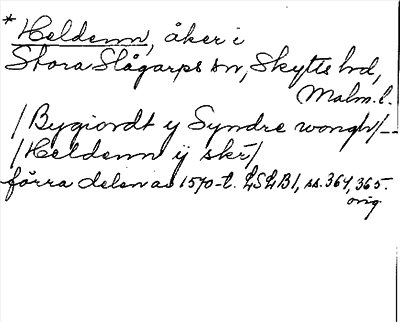 * Heldenn, åker i
Stora Slågarps sn, Skytts hd,
Malm. l.
/Bygiordt y Syndre wongh/--
/Heldenn ÿ skr/
förra delen av 1570-t. LSLB1, ss. 364, 365.
orig.